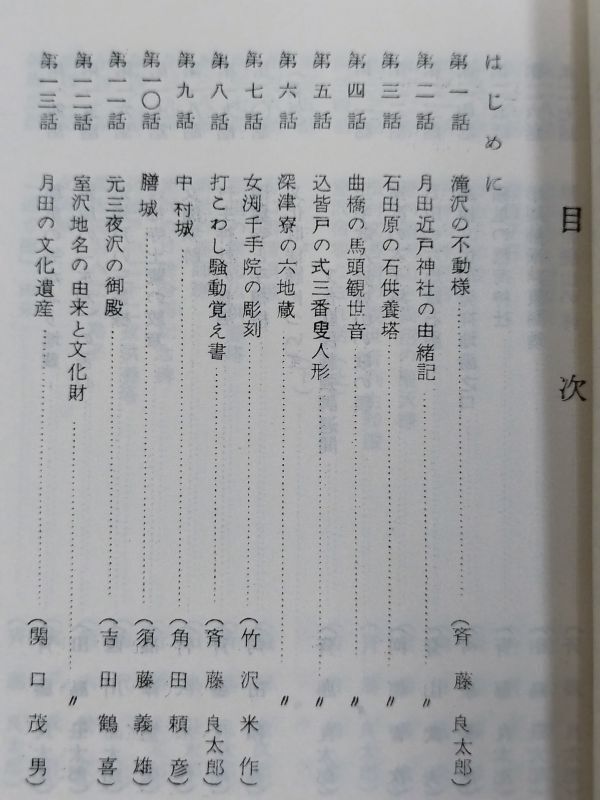 目次
はじめに
第一話 滝沢の不動様……………(斉藤良太郎)
第二話 月田近戸神社の由緒記……………〃
第三話 石田原の石供養塔……………〃
第四話 曲橋の馬頭観世音……………〃
第五話 込皆戸の式三番叟人形……………〃
第六話 深津寮の六地蔵……………〃
第七話 女渕千手院の彫刻……………(竹沢米作)
第八話 打こわし騒動覚え書……………(斉藤良太郎)
第九話 中村城……………(角田頼彦)
第一〇話 膳城……………(須藤義雄)
第一一話 元三夜沢の御殿……………(吉田鶴喜)
第一二話 室沢地名の由来と文化財……………〃
第一三話 月田の文化遺産……………(関口茂男)